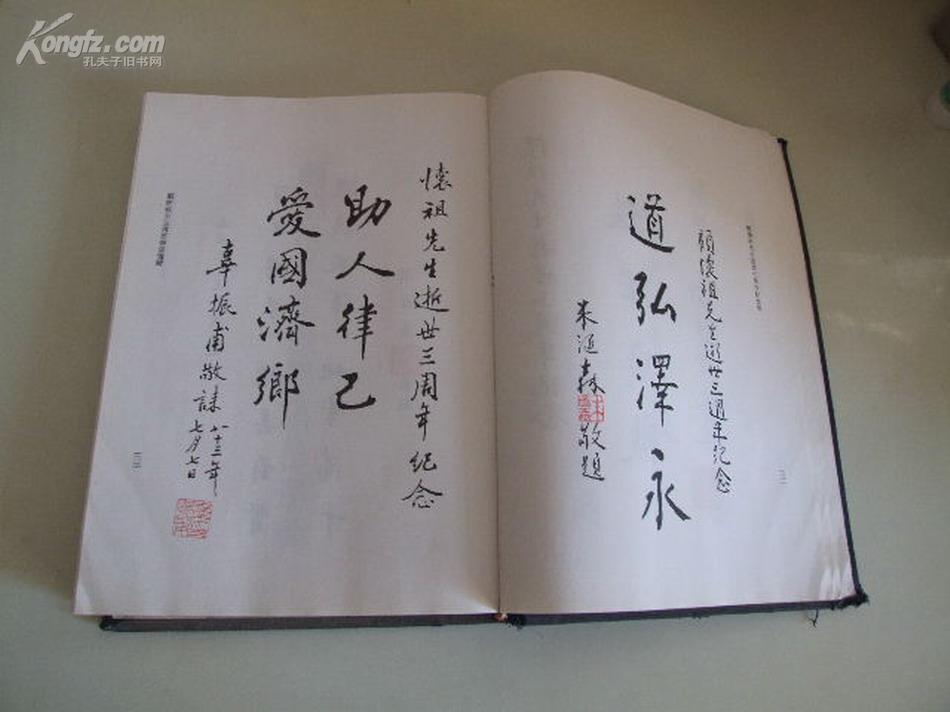 Kongfz.com
孔夫子旧书网
顧懷祖先生逝世三週年紀念
道弘澤永
朱滙森敬題
懷祖先生逝世三周年紀念
助人律己
愛國濟鄉
辜振甫敬誌
八十三年
七月七日